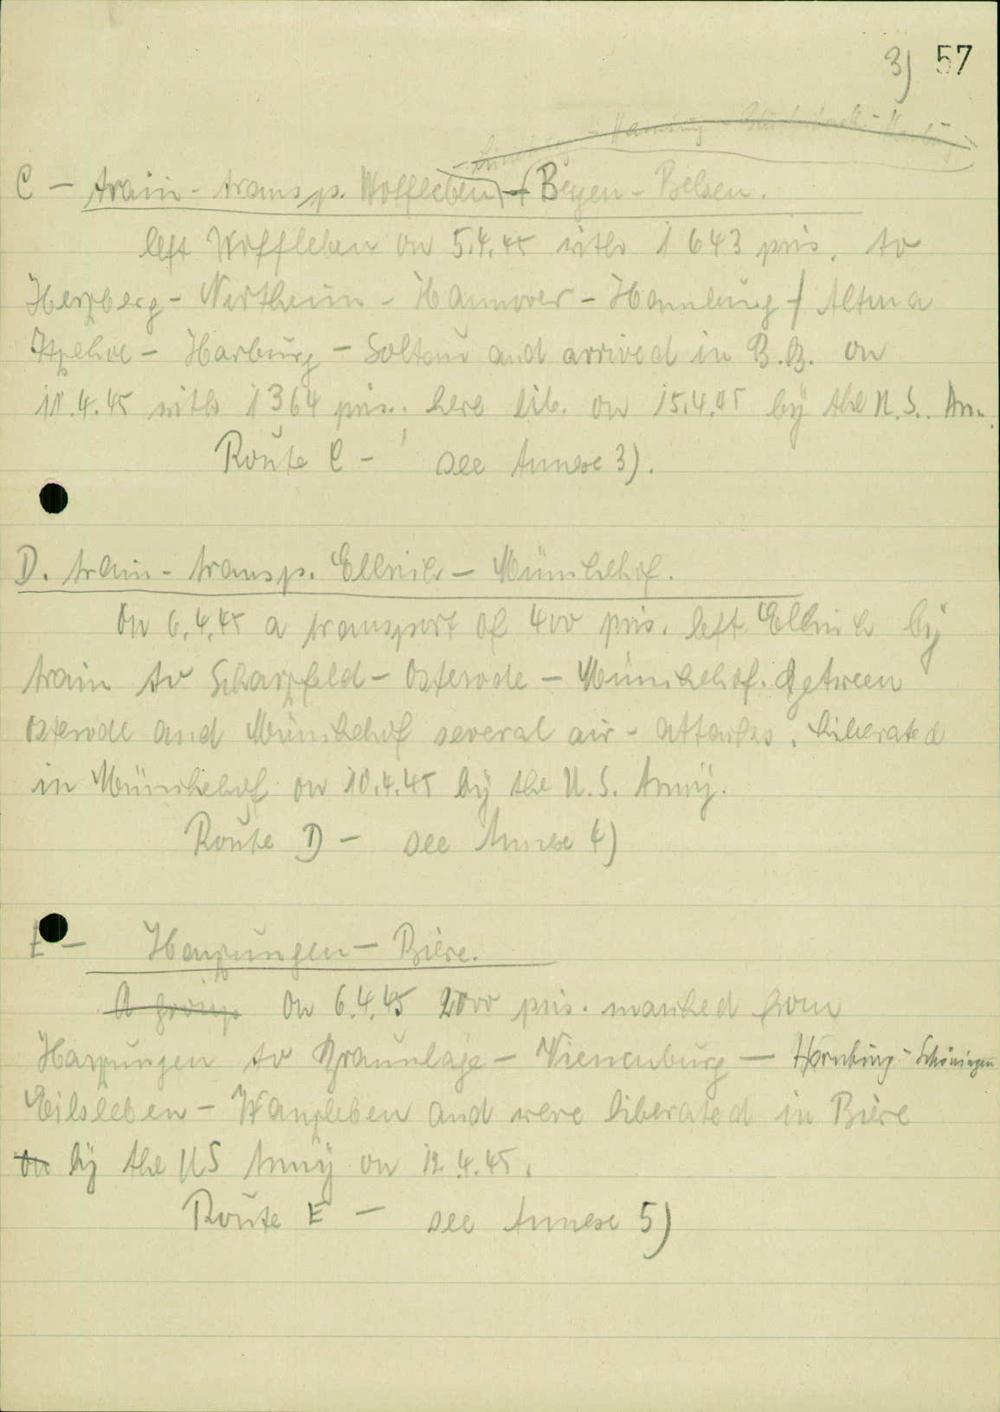 3) 57
C - train - transp. Woffleben - Bergen - Belsen.
left Woffleben on 5.4.45 with 1643 pris. to
Herzberg - Northeim - Hannover - Hamburg / Altona
Itzehoe - Harburg - Soltau and arrived in B.B. on
11.4.45 with 1364 pris. here lib. on 15.4.45 by the
Route C - see Annexe 3).
D. train - transp. Ellrich - Münchehof.
On 6.4.45 a transport of 400 pris. left Ellrich by
train to Scharzfeld - Osterode - Münchehof. Between
Osterode and Münchehof several air - attacks. Liberated
in Münchehof on 10.4.45 by the U.S. Army.
Route D - see Annexe 4)
E - Harzungen - Bière.
A group On 6.4.45 2000 pris. marched from
Harzungen to Braunlage - Vienenburg - Hornburg - Schöningen
Eilsleben - Wanzleben and were liberated in Bière
on by the US Army on 12.4.45.
Route E - see Annexe 5)